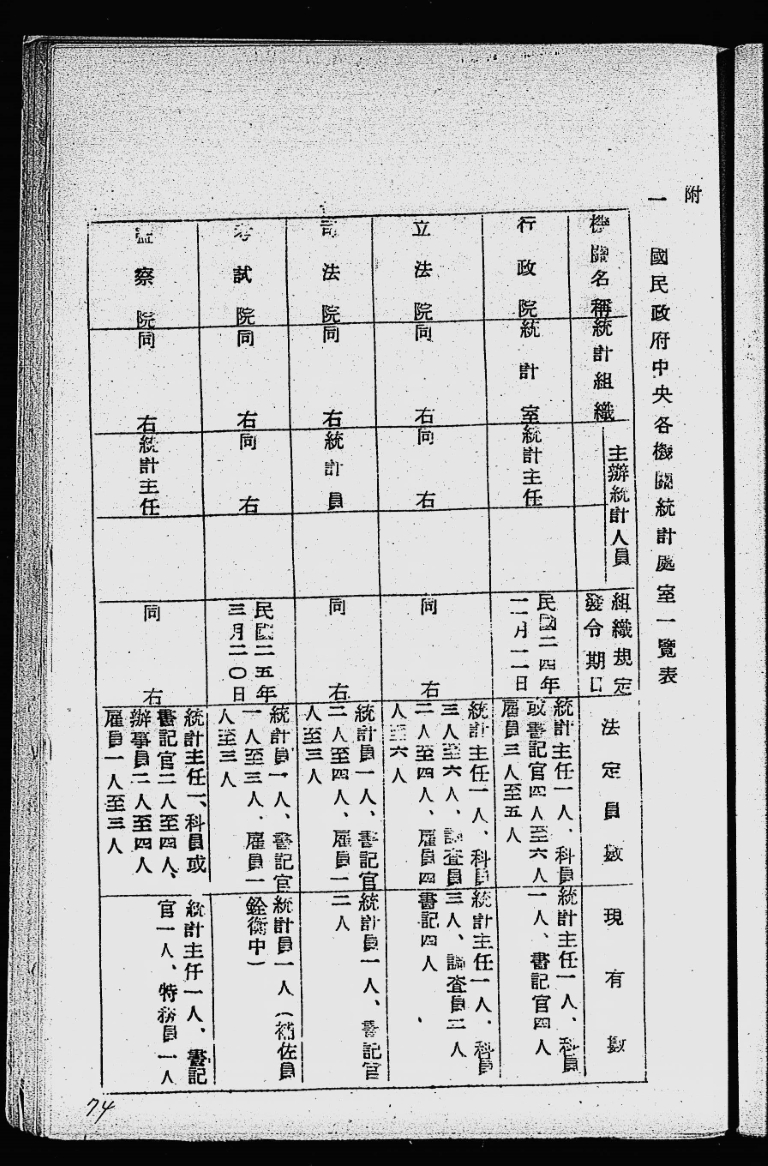 附
一　國民政府中央各機關統計處室一覽表
機關名稱
統計組織
主辦統計人員
組織規定
發令期日
法定員數
現有數
行政院
統計室
統計主任
民國二四年
二月二一日
統計主任一人、科員
或書記官四人至六人
雇員三人至五人
統計主任一人、科員
一人、書記官四人
立法院
同右
同右
同右
統計主任一人、科員
三人至六人、調查員
二人至四人、雇員四
人至六人
統計主任一人、科員
三人、調查員二人
書記四人
司法院
同右
統計員
同右
統計員一人、書記官
二人至四人、雇員一
人至三人
統計員一人、書記官
二人
考試院
同右
同右
民國二五年
三月二〇日
統計員一人、書記官
一人至三人、雇員一
人至三人
統計員一人（補佐員
銓衡中）
監察院
同右
統計主任
同右
統計主任一、科員或
書記官二人至四人、
辦事員二人至四人
雇員一人至三人
統計主任一人、書記
官一人、特務員一人
74